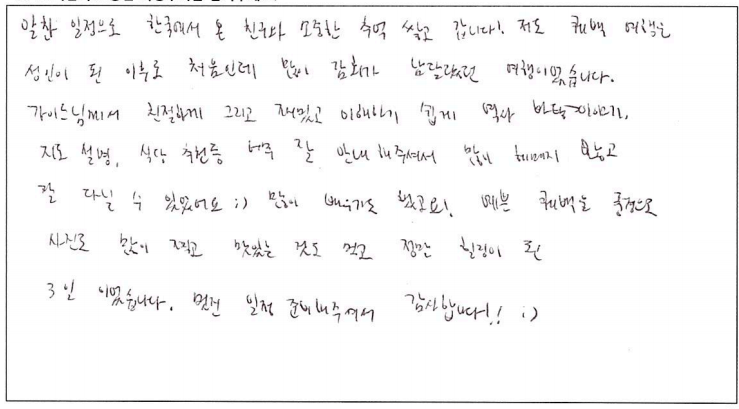 알찬 일정으로 한국에서 온 친구와 소중한 추억 쌓고 갑니다! 저도 퀘백 여행은
성인이 된 이후로 처음인데 많이 감회가 남달랐던 여행이었습니다.
가이드님께서 친절하게 그리고 재밌고 이해하기 쉽게 역사 이야기,
지도 설명, 식당 추천등 아주 잘 안내해주셔서 많이 헤매지 않고
잘 다닐 수 있었어요 :) 많이 배우기도 했고요! 예쁜 퀘백을 풍경으로
사진도 많이 찍고 맛있는 것도 먹고 정말 힐링이 된
3일 이었습니다. 멋진 일정 준비해주셔서 감사합니다!! :)